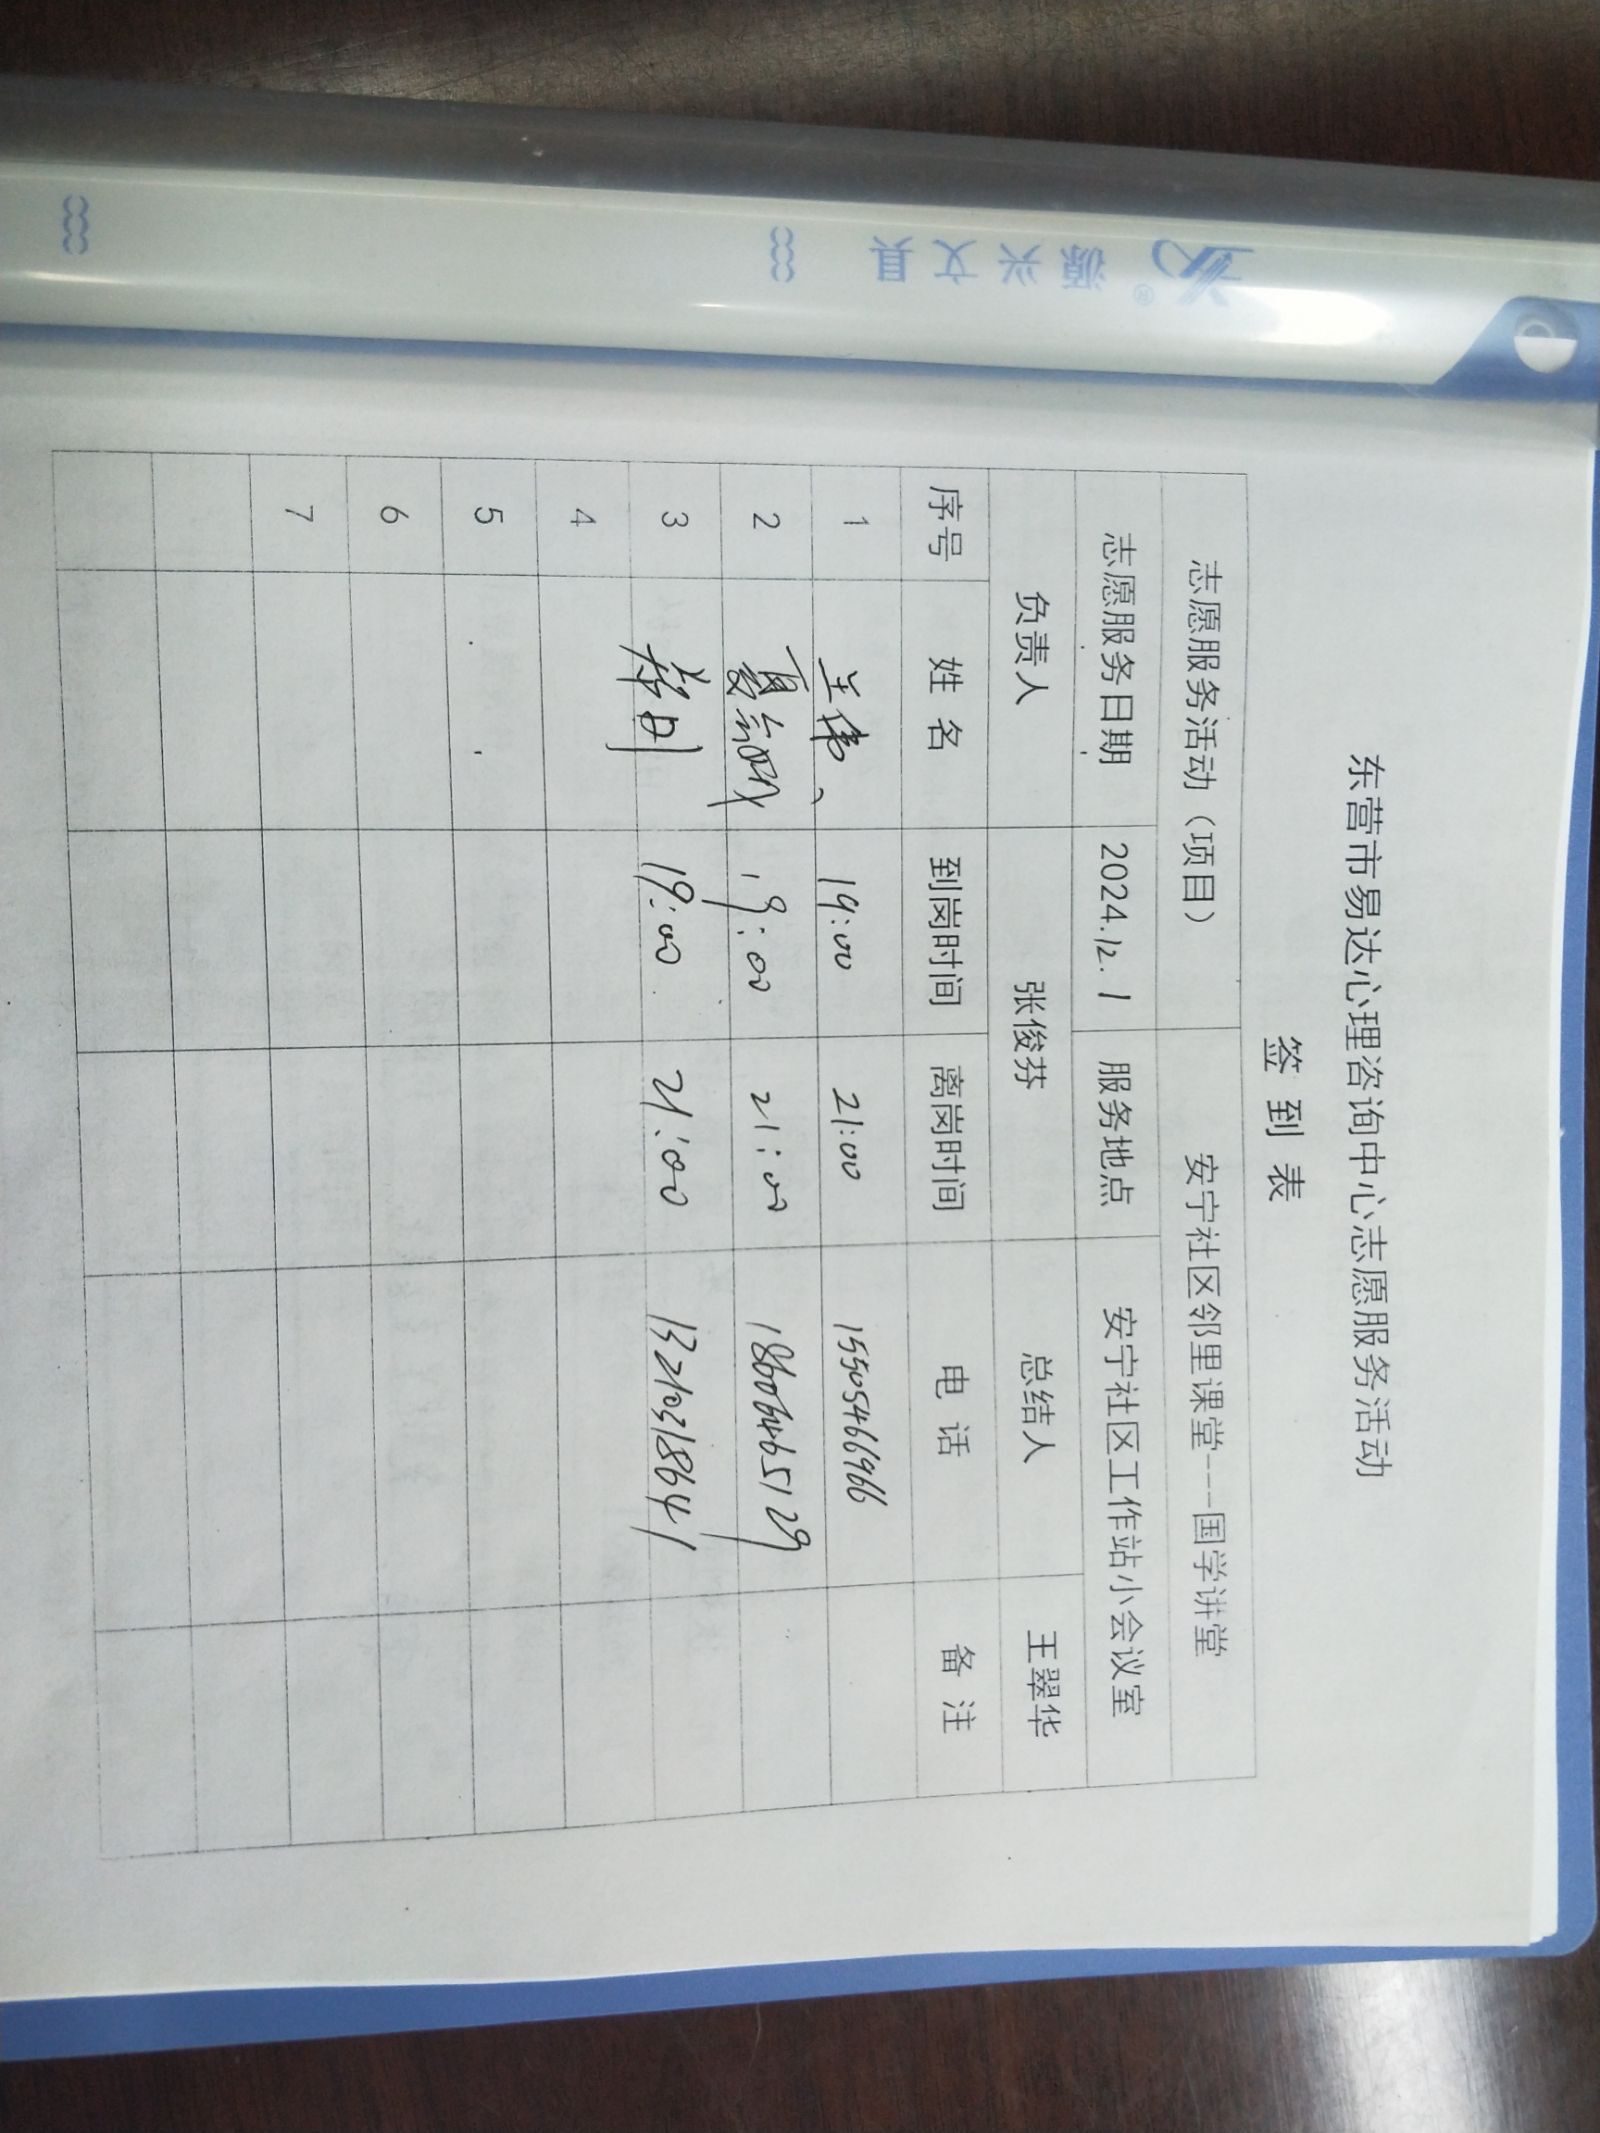 源兴文具
东营市易达心理咨询中心志愿服务活动
签到表
志愿服务活动（项目） 安宁社区邻里课堟---国学讲堂
志愿服务日期 2024.12.1 服务地点 安宁社区工作站小会议室
负责人 张俊芬 总结人 王翠华
序号 姓名 到岗时间 离岗时间 电话 备注
1 兰伟 19:00 21:00 15505466966
2 夏 19:00 21:00 18606465129
3 19:00 21:00 13210318641
4
5
6
7